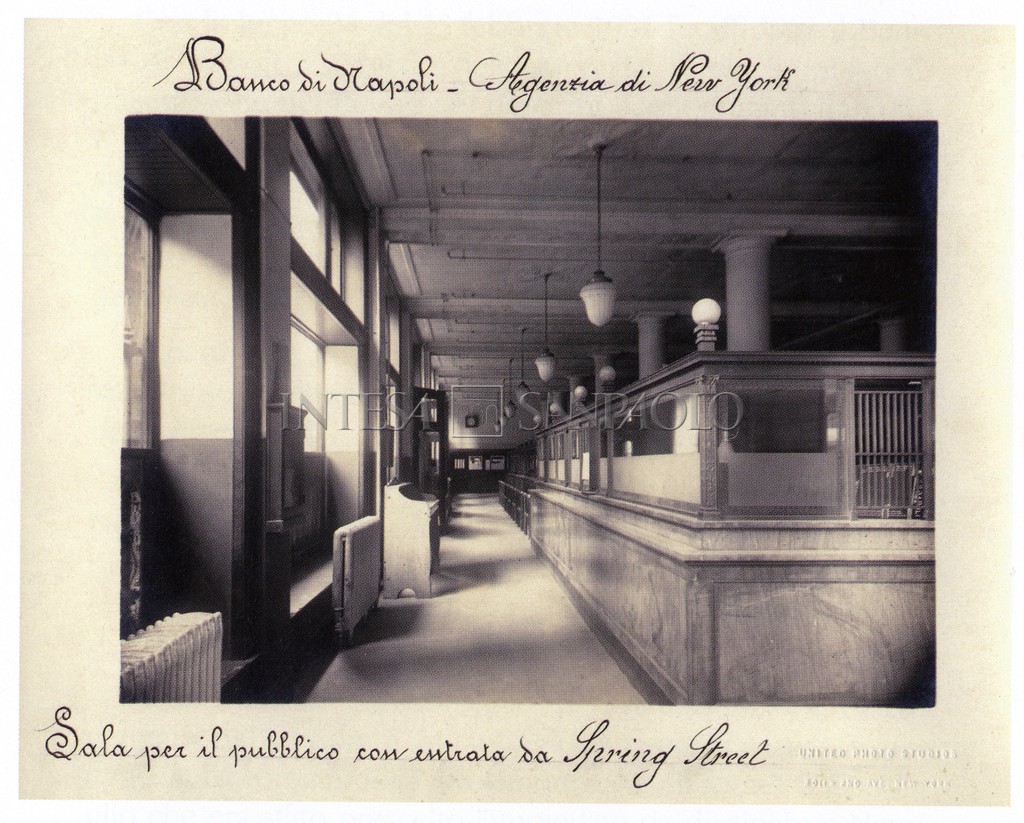 Banco di Napoli - Agenzia di New York
INTESA SANPAOLO
Sala per il pubblico con entrata da Spring Street
UNITED PHOTO STUDIOS
2ND AVE. NEW YORK